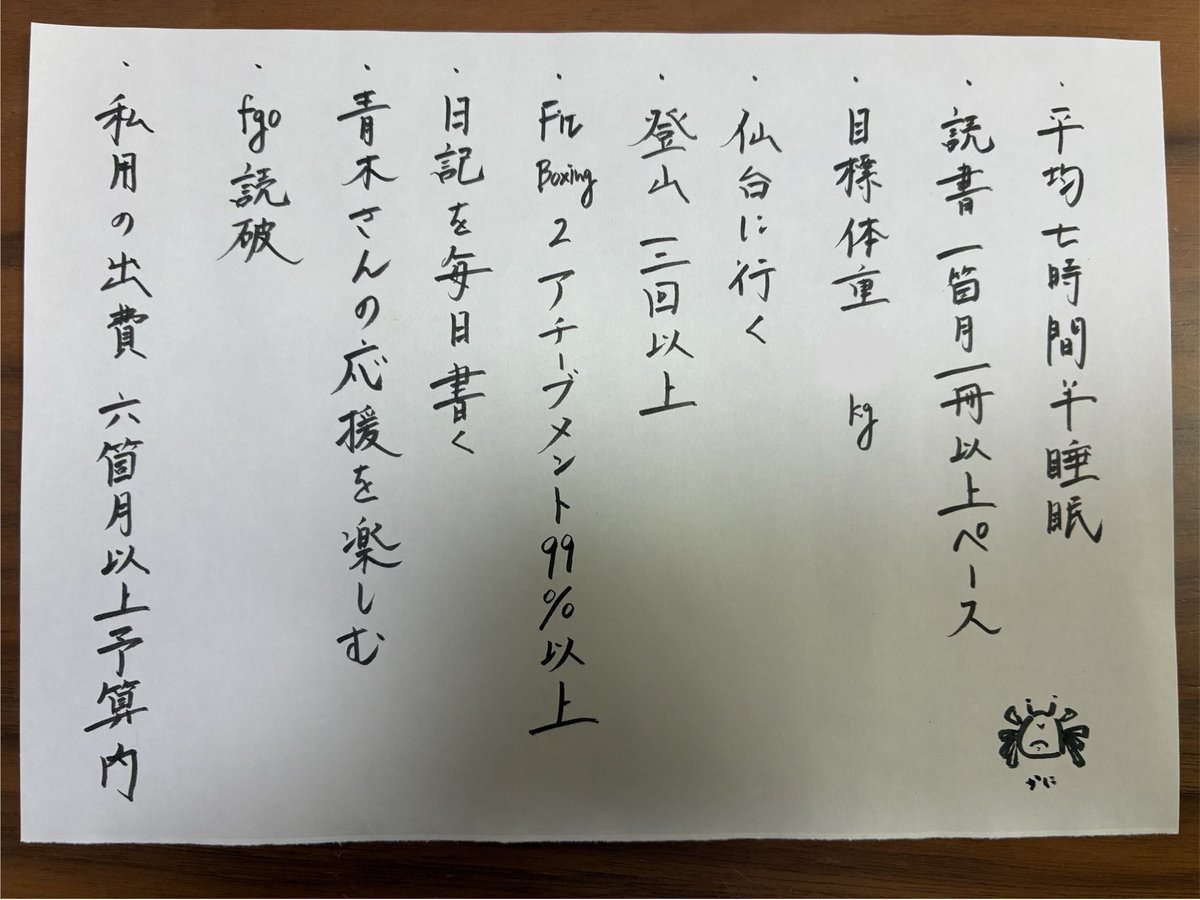 ・平均七時間半睡眠
・読書 一箇月一冊以上ペース
・目標体重 kg
・仙台に行く
・登山 三回以上
・Fit Boxing 2 アチーブメント99%以上
・日記を毎日書く
・青木さんの応援を楽しむ
・fgo読破
・私用の出費 六箇月以上予算内
かに